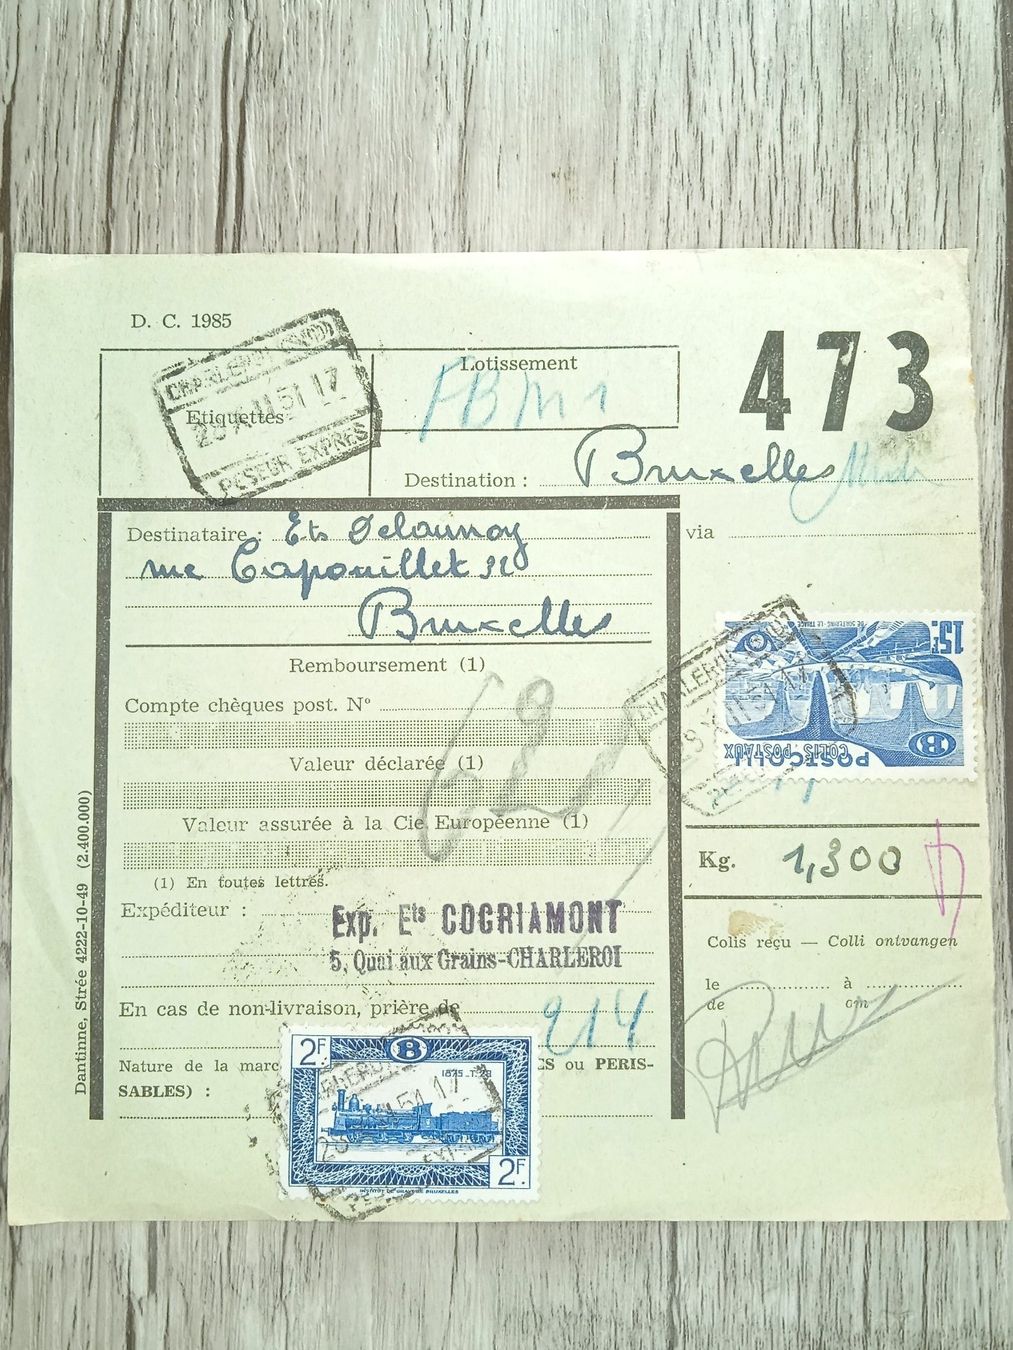 D. C. 1985
473
Lotissement
FBM1
Etiquettes
CHARLEROI (SUD)
28 XII 51 17
PESEUR EXPRES
Destination : Bruxelles Midi
Destinataire : Ets Delaunoy
rue Capouillet 32
Bruxelles
via
Remboursement (1)
Compte chèques post. N°
Valeur déclarée (1)
Valeur assurée à la Cie Européenne (1)
(1) En toutes lettres.
Expéditeur :
Exp. Ets COGRIAMONT
5, Quai aux Grains-CHARLEROI
En cas de non-livraison, prière de
214
Nature de la marc ES ou PERIS-
SABLES) :
15F
COLIS POSTAUX
POSTCOLLI
B
Kg. 1,300
Colis reçu — Colli ontvangen
le à
de om
2F
B
1875 - T.28
2F
INSTITUT DE GRAVURE BRUXELLES
Dantinne, Strée 4222-10-49 (2.400.000)